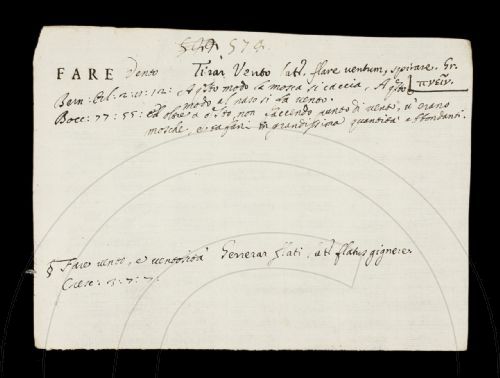 574.
FARE Vento Tirar Vento latt. flare ventum, spirare. Gr. πνεῖν.
Bern: Orl: 2: 10: 12: A q̃sto modo la mosca si caccia, A q̃sto
modo al naso si fa vento.
Bocc: 77: 55: Ed oltre a q̃sto non facendo punto di vento, v'erano
mosche, e tafani in grandissima quantità abbondanti.
§ Fare vento, e ventosità Generar flati, latt. flatus gignere
Cresc: 7: